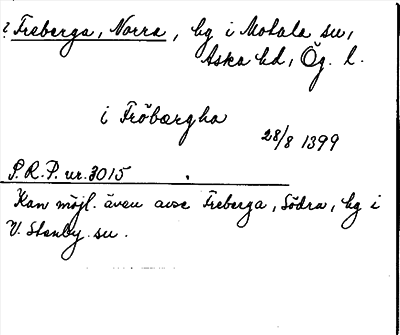 ? Freberga, Norra, bg i Motala sn,
Aska hd, Ög. l.
i Fröbærgha
28/8 1399
P.R.P. nr. 3015.
Kan möjl. även avse Freberga, Södra, bg i
V. Stenby sn.